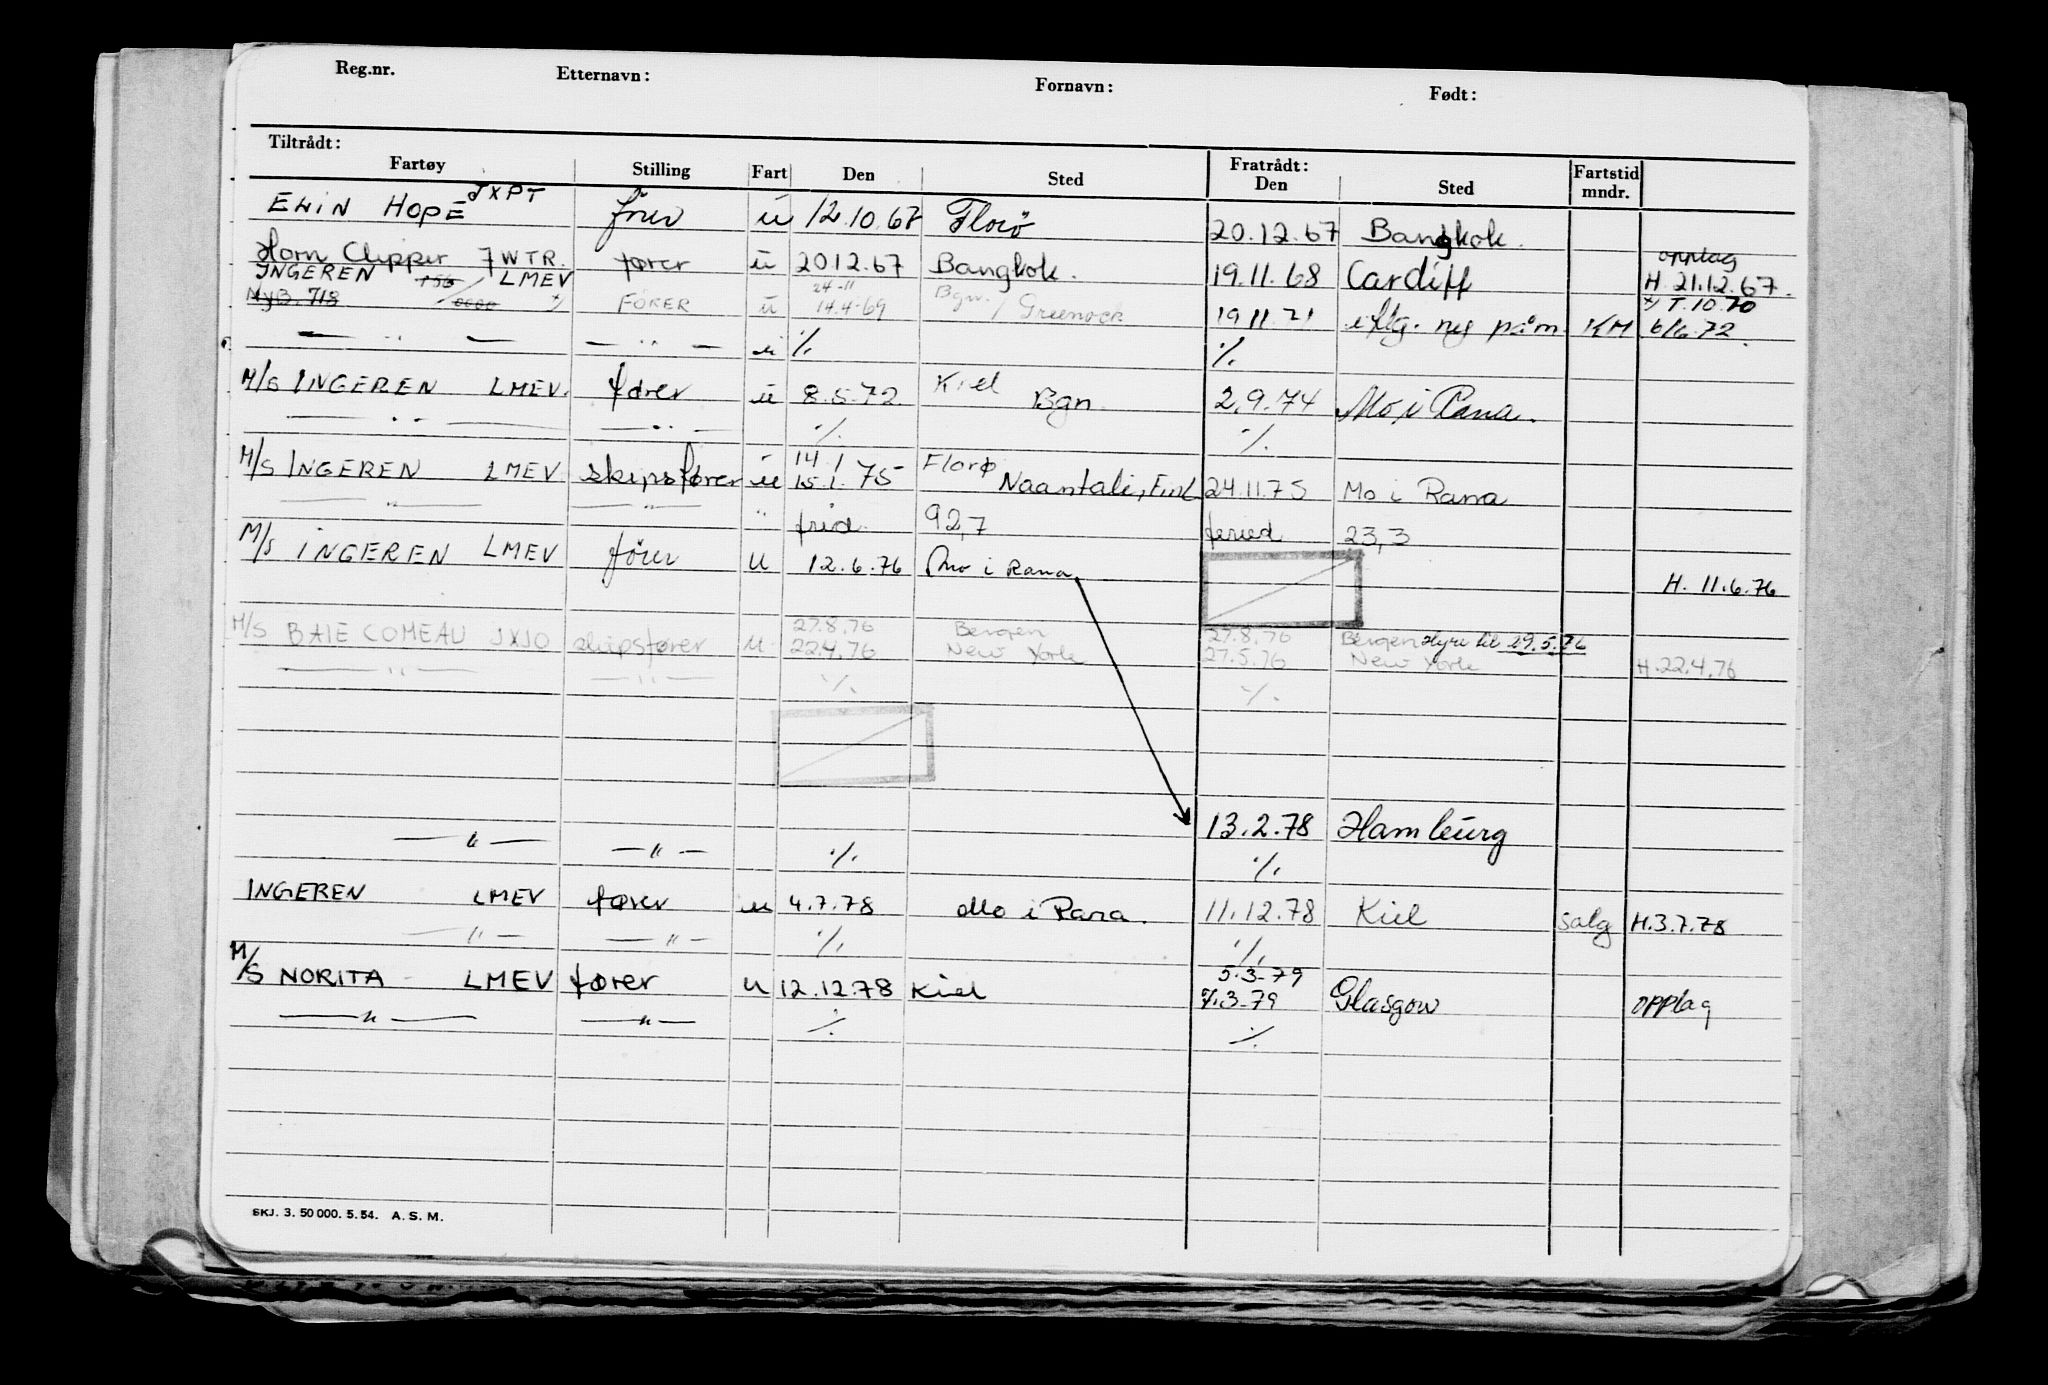 Reg.nr. Etternavn: Fornavn: Født:
Tiltrådt: Fratrådt:
Fartøy Stilling Fart Den Sted Den Sted Fartstid mndr.
ELIN HOPE JXPT förer u 12.10.67 Florö 20.12.67 Bangkok.
Horn Clipper 7WTR. fører u 2012.67 Bangkok. 19.11.68 Cardiff opplag H. 21.12.67.
INGEREN LMEV 24-11 Bgn. x/ T.10.70
NyB. 718 x/ FÖRER u 14.4-69 / Greenock 19 11 71 i flg. ny påm. KM 6/6.72.
— " — — " — u ./. ./.
M/S INGEREN LMEV. fører u 8.5-72 Kiel Bgn. 2.9.74 Mo i Rana.
— " — — " — ./. ./.
14.1 Florø
M/S INGEREN LMEV skipsfører u 15.1.75 Naantali, Finl 24.11.75 Mo i Rana
— " — — " — " frid. 92,7 feried 23,3
M/S INGEREN LMEV förer u 12.6.76 Mo i Rana H. 11.6.76
27.8.76 Bergen 27.8.76 Bergen Hyre til 29.5.76
M/S BAIE COMEAU JXJO skipsfører u 22.4.76 New York 27.5.76 New York H.22.4.76
— " — — " — ./. ./.
13.2.78 Hamburg
— " — — " — ./. ./.
INGEREN LMEV fører u 4.7.78 Mo i Rana. 11.12.78 Kiel salg H.3.7.78
— " — — " — ./. ./.
5.3-79
M/S NORITA LMEV fører u 12.12.78 Kiel .3-79 Glasgow opplag
— " — — " — ./. ./.
SKJ. 3. 50 000. 5. 54. A. S. M.